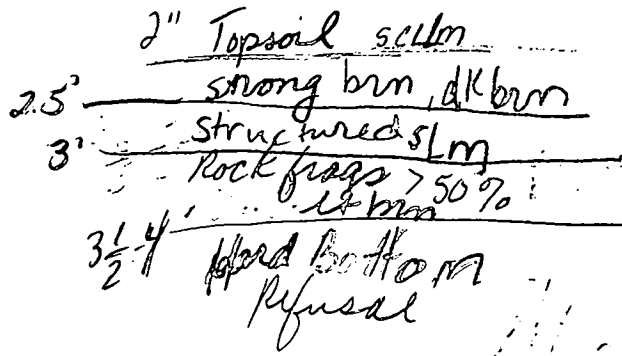 2" Topsoil scLm
strong brn, dk brn
2.5'
structured sLm
3'
Rock frags > 50%
lt brn
3 1/2 - 4'
Hard Bottom
Refusal